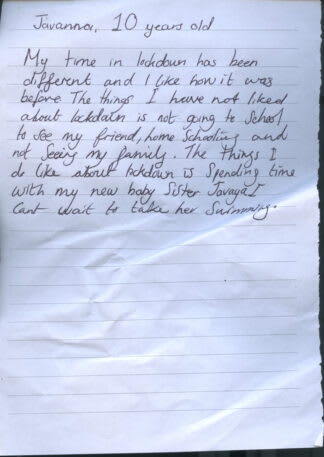 Javanna, 10 years old
My time in lockdown has been
different and I like how it was
before The things I have not liked
about lockdown is not going to School
to see my friend, home schooling and
not Seeing my family. The things I
do like about lockdown is Spending time
with my new baby Sister Javaya I
Cant wait to take her Swimming.